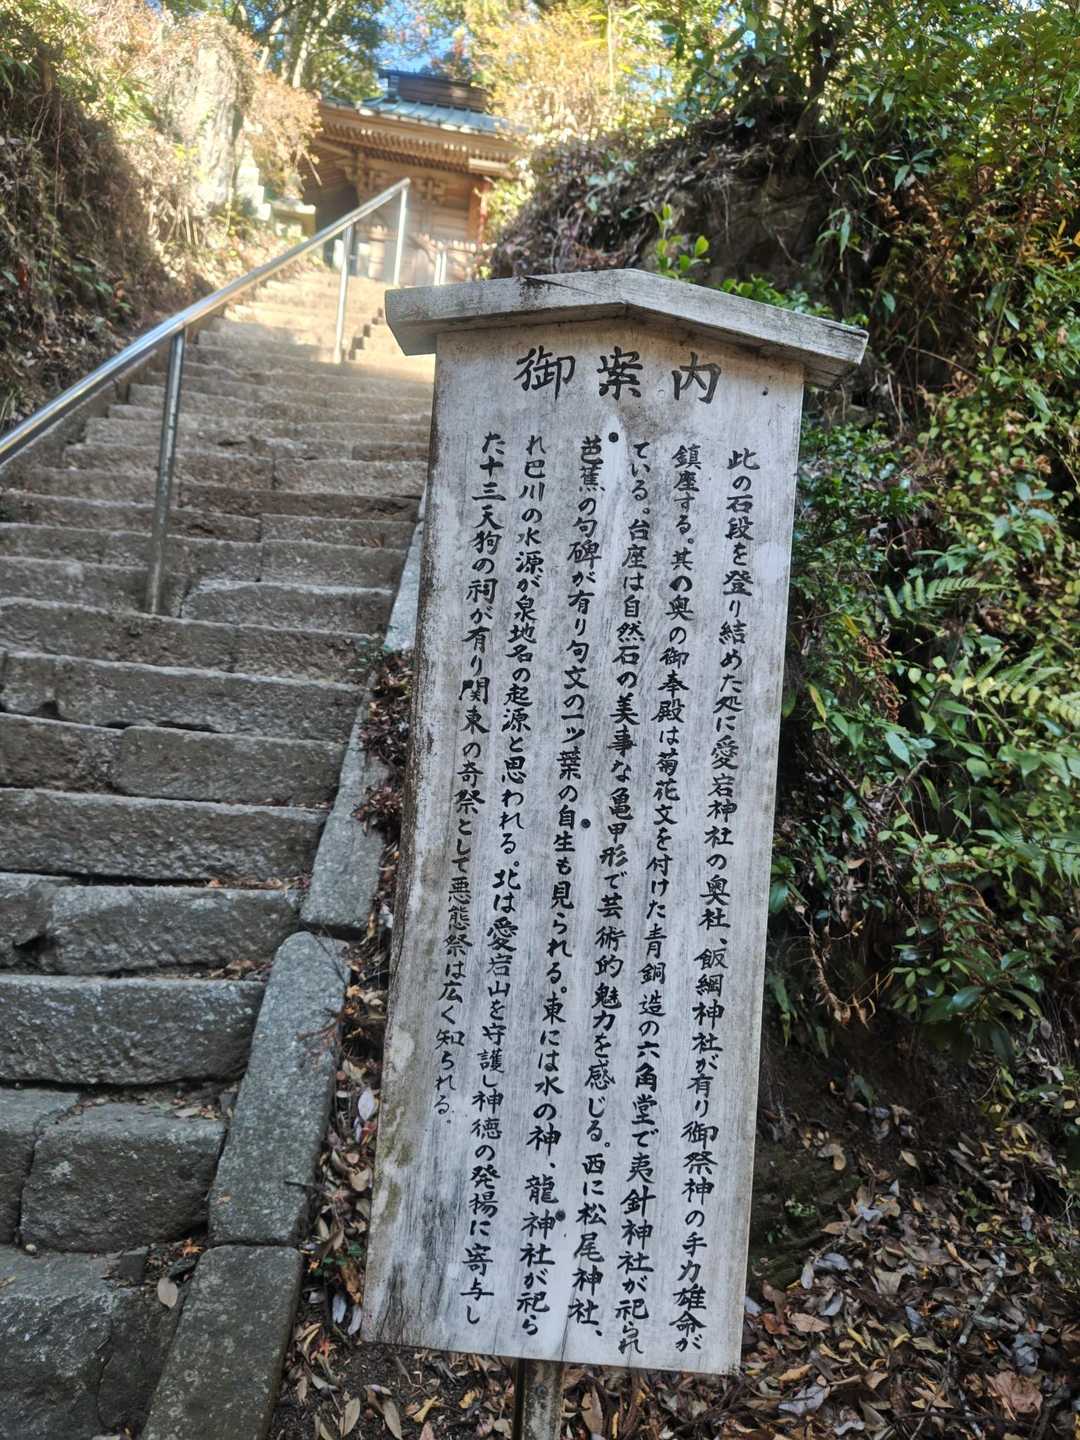 御案内
此の石段を登り結めた処に愛宕神社の奥社、飯綱神社が有り御祭神の手力雄命が
鎮座する。其の奥の御奉殿は菊花文を付けた青銅造の六角堂で夷針神社が祀られ
ている。台座は自然石の美事な亀甲形で芸術的魅力を感じる。西に松尾神社、
芭蕉の句碑が有り句文の一ッ葉の自生も見られる。東には水の神、龍神社が祀ら
れ巴川の水源が泉地名の起源と思われる。北は愛宕山を守護し神徳の発揚に寄与し
た十三天狗の祠が有り関東の奇祭として悪態祭は広く知られる。